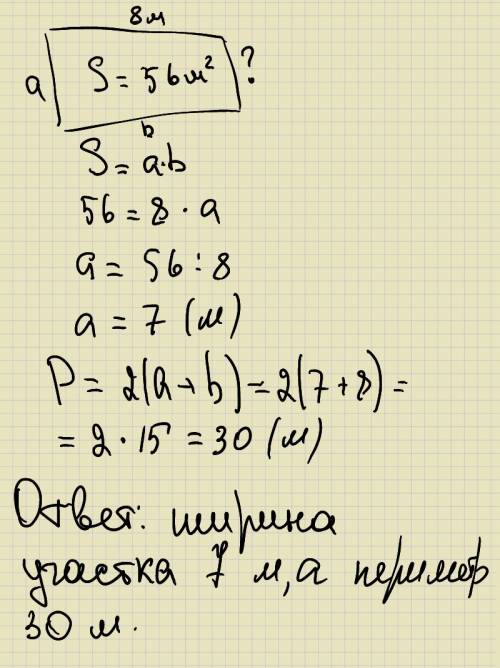 8м
a S = 56м² ?
b
S = a·b
56 = 8 · a
a = 56 : 8
a = 7 (м)
P = 2(a + b) = 2(7 + 8) =
= 2 · 15 = 30 (м)
Ответ: ширина
участка 7 м, а периметр
30 м.